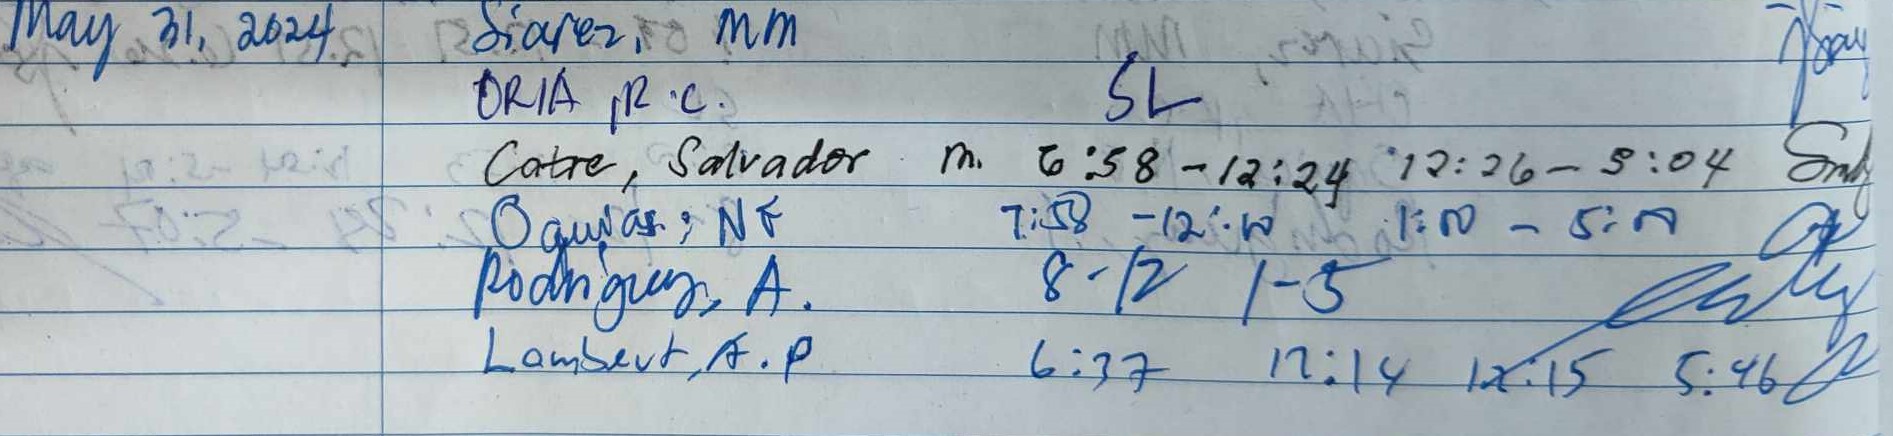 May 31, 2024 Siarez, MM
ORIA, R.C. SL
Catre, Salvador M. 6:58 - 12:24 12:26 - 5:04
Oquias, NF 7:58 - 12:10 1:00 - 5:00
Rodriguez, A. 8-12 1-5
Lambert, A.P 6:37 12:14 12:15 5:46